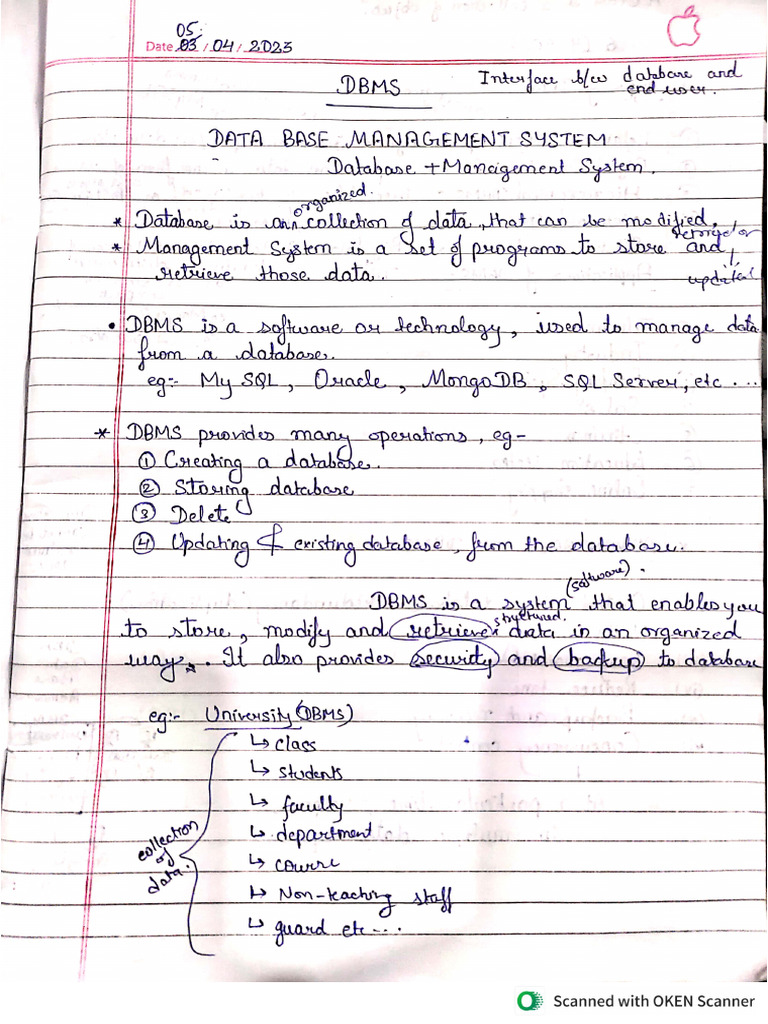 05.
Date 03/04/2023
DBMS
Interface b/w database and
end user.
DATA BASE MANAGEMENT SYSTEM
Database + Management System.
organized.
* Database is an collection of data, that can be modified,
retrieved or
* Management System is a set of programs to store and
updated
retrieve those data.
• DBMS is a software or technology, used to manage data
from a database.
eg:- My SQL, Oracle, MongoDB, SQL Server, etc...
* DBMS provides many operations, eg-
① Creating a database.
② Storing database
③ Delete
④ Updating & existing database, from the database.
(software).
DBMS is a system that enables you
structured.
to store, modify and retrieve data in an organized
way. It also provides security and backup to database
eg:- University (DBMS)
↳ class
↳ students
↳ faculty
↳ department
↳ course
↳ Non-teaching staff
↳ guard etc...
collection
of
data.
Scanned with OKEN Scanner